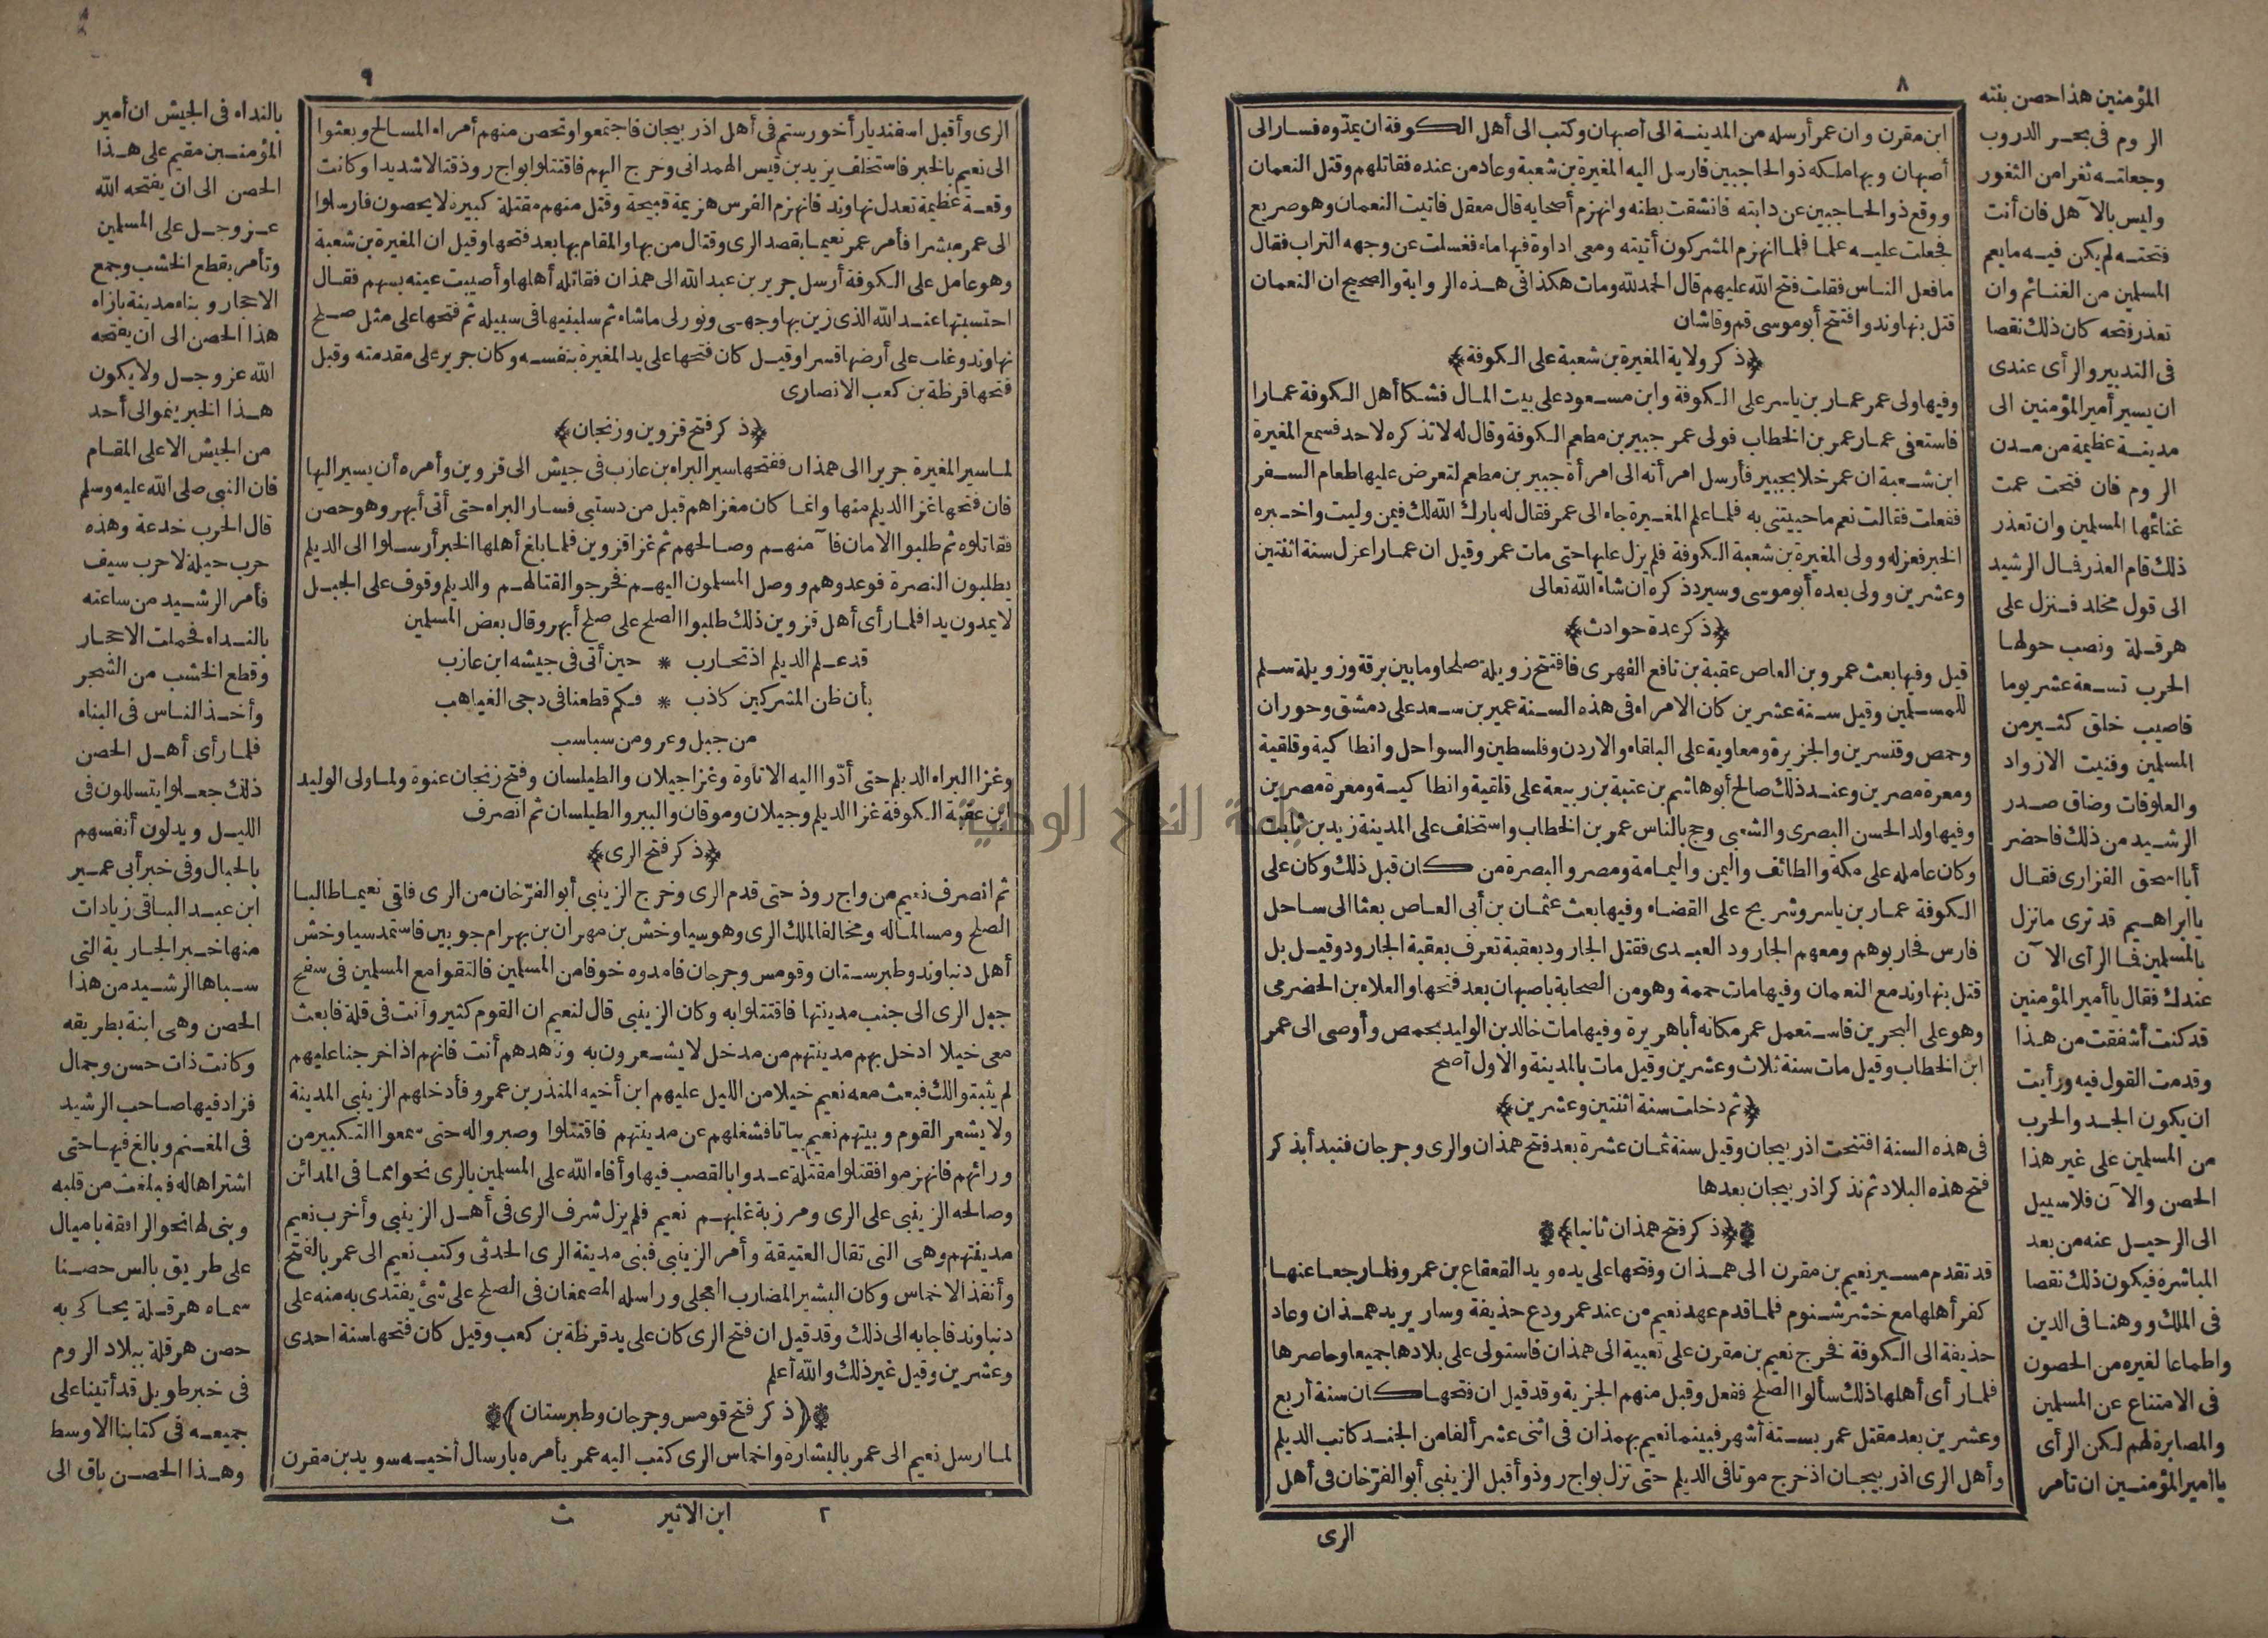 ٨
ابن مقرن وان عمر أرسله من المدينة الى أصبهان وكتب الى أهل الكوفة ان يمدّوه فسار الى
أصبهان وبها ملكه ذو الحاجبين فارسل اليه المغيرة بن شعبة وعاد من عنده فقاتلهم وقتل النعمان
ووقع ذو الحاجبين عن دابته فانشقت بطنه وانهزم أصحابه قال معقل فاتيت النعمان وهو صريع
فجعلت عليه علما فلما انهزم المشركون أتيته ومعى اداوة فيها ماء فغسلت عن وجهه التراب فقال
ما فعل الناس فقلت فتح الله عليهم قال الحمد لله ومات هكذا فى هذه الرواية والصحيح ان النعمان
قتل بنهاوند وافتتح أبو موسى قم وقاشان
﴿ذكر ولاية المغيرة بن شعبة على الكوفة﴾
وفيها ولى عمر عمار بن ياسر على الكوفة وابن مسعود على بيت المال فشكا أهل الكوفة عمارا
فاستعفى عمار عمر بن الخطاب فولى عمر جبير بن مطعم الكوفة وقال له لا تذكره لاحد فسمع المغيرة
ابن شعبة ان عمر خلا بجبير فأرسل امرأته الى امرأة جبير بن مطعم لتعرض عليها طعام السفر
ففعلت فقالت نعم ما حييتنى به فلما علم المغيرة جاء الى عمر فقال له بارك الله لك فيمن وليت واخبره
الخبر فعزله وولى المغيرة بن شعبة الكوفة فلم يزل عليها حتى مات عمر وقيل ان عمارا عزل سنة اثنتين
وعشرين وولى بعده أبو موسى وسيرد ذكره ان شاء الله تعالى
﴿ذكر عدة حوادث﴾
قيل وفيها بعث عمرو بن العاص عقبة بن نافع الفهرى فافتتح زويلة صلحا وما بين برقة وزويلة سلم
للمسلمين وقيل سنة عشرين كان الامراء فى هذه السنة عمير بن سعد على دمشق وحوران
وحمص وقنسرين والجزيرة ومعاوية على البلقاء والاردن وفلسطين والسواحل وانطاكية وقلقية
ومعرة مصرين وعند ذلك صالح أبو هاشم بن عتبة بن ربيعة على قلقية وانطاكية ومعرة مصرين
وفيها ولد الحسن البصرى والشعبى وحج بالناس عمر بن الخطاب واستخلف على المدينة زيد بن ثابت
وكان عامله على مكة والطائف واليمن واليمامة ومصر والبصرة من كان قبل ذلك وكان على
الكوفة عمار بن ياسر وشريح على القضاء وفيها بعث عثمان بن أبى العاص بعثا الى ساحل
فارس فحاربوهم ومعهم الجارود العبدى فقتل الجارود بعقبة تعرف بعقبة الجارود وقيل بل
قتل بنهاوند مع النعمان وفيها مات حممة وهو من الصحابة باصبهان بعد فتحها والعلاء بن الحضرمى
وهو على البحرين فاستعمل عمر مكانه أبا هريرة وفيها مات خالد بن الوليد بحمص وأوصى الى عمر
ابن الخطاب وقيل مات سنة ثلاث وعشرين وقيل مات بالمدينة والاول أصح
﴿ثم دخلت سنة اثنتين وعشرين﴾
فى هذه السنة افتتحت اذربيجان وقيل سنة ثمان عشرة بعد فتح همذان والرى وجرجان فنبدأ بذكر
فتح هذه البلاد ثم نذكر اذربيجان بعدها
﴿ذكر فتح همذان ثانيا﴾
قد تقدم مسير نعيم بن مقرن الى همذان وفتحها على يده ويد القعقاع بن عمرو فلما رجعا عنها
كفر أهلها مع خشرشنوم فلما قدم عهد نعيم من عند عمر ودع حذيفة وسار يريد همذان وعاد
حذيفة الى الكوفة فخرج نعيم بن مقرن على تعبية الى همذان فاستولى على بلادها جميعا وحاصرها
فلما رأى أهلها ذلك سألوا الصلح ففعل وقبل منهم الجزية وقد قيل ان فتحها كان سنة أربع
وعشرين بعد مقتل عمر بستة أشهر فبينما نعيم بهمذان فى اثنى عشر ألفا من الجند كاتب الديلم
وأهل الرى اذربيجان اذ خرج موتا فى الديلم حتى نزل بواج روذ وأقبل الزينبى أبو الفرّخان فى أهل
الرى
المؤمنين هذا حصن بنته
الروم فى نحر الدروب
وجعلته ثغرا من الثغور
وليس بالآهل فان أنت
فتحته لم يكن فيه ما يعم
المسلمين من الغنائم وان
تعذر فتحه كان ذلك نقصا
فى التدبير والرأى عندى
ان يسير أمير المؤمنين الى
مدينة عظيمة من مدن
الروم فان فتحت عمت
غنائمها المسلمين وان تعذر
ذلك قام العذر فمال الرشيد
الى قول مخلد فنزل على
هرقلة ونصب حولها
الحرب تسعة عشر يوما
فاصيب خلق كثير من
المسلمين وفنيت الازواد
والعلوفات وضاق صدر
الرشيد من ذلك فاحضر
أبا اسحق الفزارى فقال
يا ابراهيم قد ترى ما نزل
بالمسلمين فما الرأى الآن
عندك فقال يا أمير المؤمنين
قد كنت أشفقت من هذا
وقدمت القول فيه ورأيت
ان يكون الجد والحرب
من المسلمين على غير هذا
الحصن والآن فلا سبيل
الى الرحيل عنه من بعد
المباشرة فيكون ذلك نقصا
فى الملك ووهنا فى الدين
واطماعا لغيره من الحصون
فى الامتناع عن المسلمين
والمصابرة لهم لكن الرأى
يا أمير المؤمنين ان تأمر
٩
الرى وأقبل اسفنديار أخو رستم فى أهل اذربيجان فاجتمعوا وتحصن منهم أمراء المسالح وبعثوا
الى نعيم بالخبر فاستخلف يزيد بن قيس الهمدانى وخرج اليهم فاقتتلوا بواج روذ قتالا شديدا وكانت
وقعة عظيمة تعدل نهاوند فانهزم الفرس هزيمة قبيحة وقتل منهم مقتلة كبيرة لا يحصون فارسلوا
الى عمر مبشرا فأمر عمر نعيما بقصد الرى وقتال من بها والمقام بها بعد فتحها وقيل ان المغيرة بن شعبة
وهو عامل على الكوفة أرسل جرير بن عبد الله الى همذان فقاتله أهلها وأصيبت عينه بسهم فقال
احتسبتها عند الله الذى زين بها وجهى ونور لى ما شاء ثم سلبنيها فى سبيله ثم فتحها على مثل صلح
نهاوند وغلب على أرضها قسرا وقيل كان فتحها على يد المغيرة بنفسه وكان جرير على مقدمته وقيل
فتحها قرظة بن كعب الانصارى
﴿ذكر فتح قزوين وزنجان﴾
لما سير المغيرة جريرا الى همذان ففتحها سير البراء بن عازب فى جيش الى قزوين وأمره أن يسير اليها
فان فتحها غزا الديلم منها وانما كان مغزاهم قبل من دستبى فسار البراء حتى أتى أبهر وهو حصن
فقاتلوه ثم طلبوا الامان فآمنهم وصالحهم ثم غزا قزوين فلما بلغ أهلها الخبر أرسلوا الى الديلم
يطلبون النصرة فوعدوهم ووصل المسلمون اليهم فخرجوا لقتالهم والديلم وقوف على الجبل
لا يمدون يدا فلما رأى أهل قزوين ذلك طلبوا الصلح على صلح أبهر وقال بعض المسلمين
قد علم الديلم اذ تحارب * حين أتى فى جيشه ابن عازب
بأن ظن المشركين كاذب * فكم قطعنا فى دجى الغياهب
من جبل وعر ومن سباسب
وغزا البراء الديلم حتى أدّوا اليه الاتاوة وغزا جيلان والطيلسان وفتح زنجان عنوة ولما ولى الوليد
ابن عقبة الكوفة غزا الديلم وجيلان وموقان والببر والطيلسان ثم انصرف
﴿ذكر فتح الرى﴾
ثم انصرف نعيم من واج روذ حتى قدم الرى وخرج الزينبى أبو الفرّخان من الرى فلقى نعيما طالبا
الصلح ومسالما له ومخالفا لملك الرى وهو سياوخش بن مهران بن بهرام جوبين فاستمد سياوخش
أهل دنباوند وطبرستان وقومس وجرجان فامدوه خوفا من المسلمين فالتقوا مع المسلمين فى سفح
جبل الرى الى جنب مدينتها فاقتتلوا به وكان الزينبى قال لنعيم ان القوم كثير وأنت فى قلة فابعث
معى خيلا ادخل بهم مدينتهم من مدخل لا يشعرون به وناهدهم أنت فانهم اذا خرجنا عليهم
لم يثبتوا لك فبعث معه نعيم خيلا من الليل عليهم ابن أخيه المنذر بن عمرو فأدخلهم الزينبى المدينة
ولا يشعر القوم وبيتهم نعيم بياتا فشغلهم عن مدينتهم فاقتتلوا وصبروا له حتى سمعوا التكبير من
ورائهم فانهزموا فقتلوا مقتلة عدوا بالقصب فيها وأفاء الله على المسلمين بالرى نحوا مما فى المدائن
وصالحه الزينبى على الرى ومرزبة عليهم نعيم فلم يزل شرف الرى فى أهل الزينبى وأخرب نعيم
مدينتهم وهى التى تقال العتيقة وأمر الزينبى فبنى مدينة الرى الحدثى وكتب نعيم الى عمر بالفتح
وأنفذ الاخماس وكان البشير المضارب العجلى وراسله المصمغان فى الصلح على شئ يفتدى به منه على
دنباوند فاجابه الى ذلك وقد قيل ان فتح الرى كان على يد قرظة بن كعب وقيل كان فتحها سنة احدى
وعشرين وقيل غير ذلك والله أعلم
﴿ذكر فتح قومس وجرجان وطبرستان﴾
لما ارسل نعيم الى عمر بالبشارة واخماس الرى كتب اليه عمر يأمره بارسال أخيه سويد بن مقرن
٢ ابن الاثير ث
بالنداء فى الجيش ان أمير
المؤمنين مقيم على هذا
الحصن الى ان يفتحه الله
عز وجل على المسلمين
وتأمر بقطع الخشب وجمع
الاحجار وبناء مدينة بازاء
هذا الحصن الى ان يفتحه
الله عز وجل ولا يكون
هذا الخبر ينمو الى أحد
من الجيش الا على المقام
فان النبى صلى الله عليه وسلم
قال الحرب خدعة وهذه
حرب حيلة لا حرب سيف
فأمر الرشيد من ساعته
بالنداء فحملت الاحجار
وقطع الخشب من الشجر
وأخذ الناس فى البناء
فلما رأى أهل الحصن
ذلك جعلوا يتسللون فى
الليل ويدلون أنفسهم
بالحبال وفى خبر أبى عمير
ابن عبد الباقى زيادات
منها خبر الجارية التى
سباها الرشيد من هذا
الحصن وهى ابنة بطريقه
وكانت ذات حسن وجمال
فزاد فيها صاحب الرشيد
فى المغنم وبالغ فيها حتى
اشتراها له فبلغت من قلبه
وبنى لها نحو الرافقة باميال
على طريق بالس حصنا
سماه هرقلة يحاكى به
حصن هرقلة ببلاد الروم
فى خبر طويل قد أتينا على
جميعه فى كتابنا الاوسط
وهذا الحصن باق الى
جامعة النجاح الوطنية